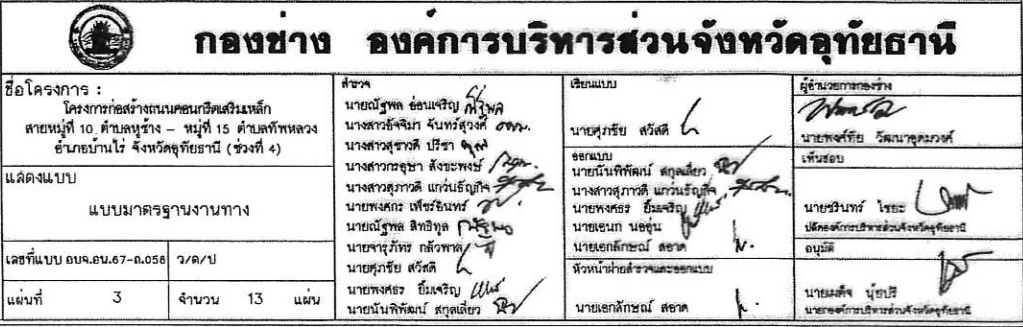 กองช่าง องค์การบริหารส่วนจังหวัดอุทัยธานี
ชื่อโครงการ :
โครงการก่อสร้างถนนคอนกรีตเสริมเหล็ก
สายหมู่ที่ 10 ตำบลหูช้าง – หมู่ที่ 15 ตำบลทัพหลวง
อำเภอบ้านไร่ จังหวัดอุทัยธานี (ช่วงที่ 4)
แสดงแบบ
แบบมาตรฐานงานทาง
เลขที่แบบ อบจ.อน.67-ถ.058 ว/ด/ป
แผ่นที่ 3 จำนวน 13 แผ่น
สำรวจ
นายณัฐพล อ่อนเจริญ
นางสาวอัจจิมา จันทร์สุวงศ์
นางสาวสุชาวดี ปรีชา
นางสาวกรอุษา สังขะพงษ์
นางสาวสุภาวดี แกว่นธัญกิจ
นายพงศกร เพ็ชร์อินทร์
นายณัฐพล สิทธิทูล
นายจารุภัทร กลัวพาล
นายศุภชัย สวัสดี
นายพงศธร ยิ้มเจริญ
นายนันพิพัฒน์ สกุลเลี่ยว
เขียนแบบ
นายศุภชัย สวัสดี
ออกแบบ
นายนันพิพัฒน์ สกุลเลี่ยว
นางสาวสุภาวดี แกว่นธัญกิจ
นายพงศธร ยิ้มเจริญ
นายเอนก นออุ่น
นายเอกลักษณ์ สอาด
หัวหน้าฝ่ายสำรวจและออกแบบ
นายเอกลักษณ์ สอาด
ผู้อำนวยการกองช่าง
นายพงศ์ทัย วัฒนาอุดมวงศ์
เห็นชอบ
นายชรินทร์ ไชยะ
ปลัดองค์การบริหารส่วนจังหวัดอุทัยธานี
อนุมัติ
นายเผด็จ นุ้ยปรี
นายกองค์การบริหารส่วนจังหวัดอุทัยธานี